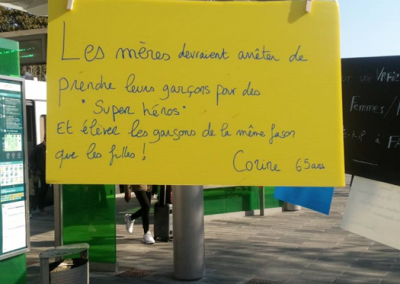 Les mères devraient arrêter de
prendre leurs garçons pour des
"Super héros"
Et élever les garçons de la même façon
que les filles !
Corine 65 ans
Femmes /